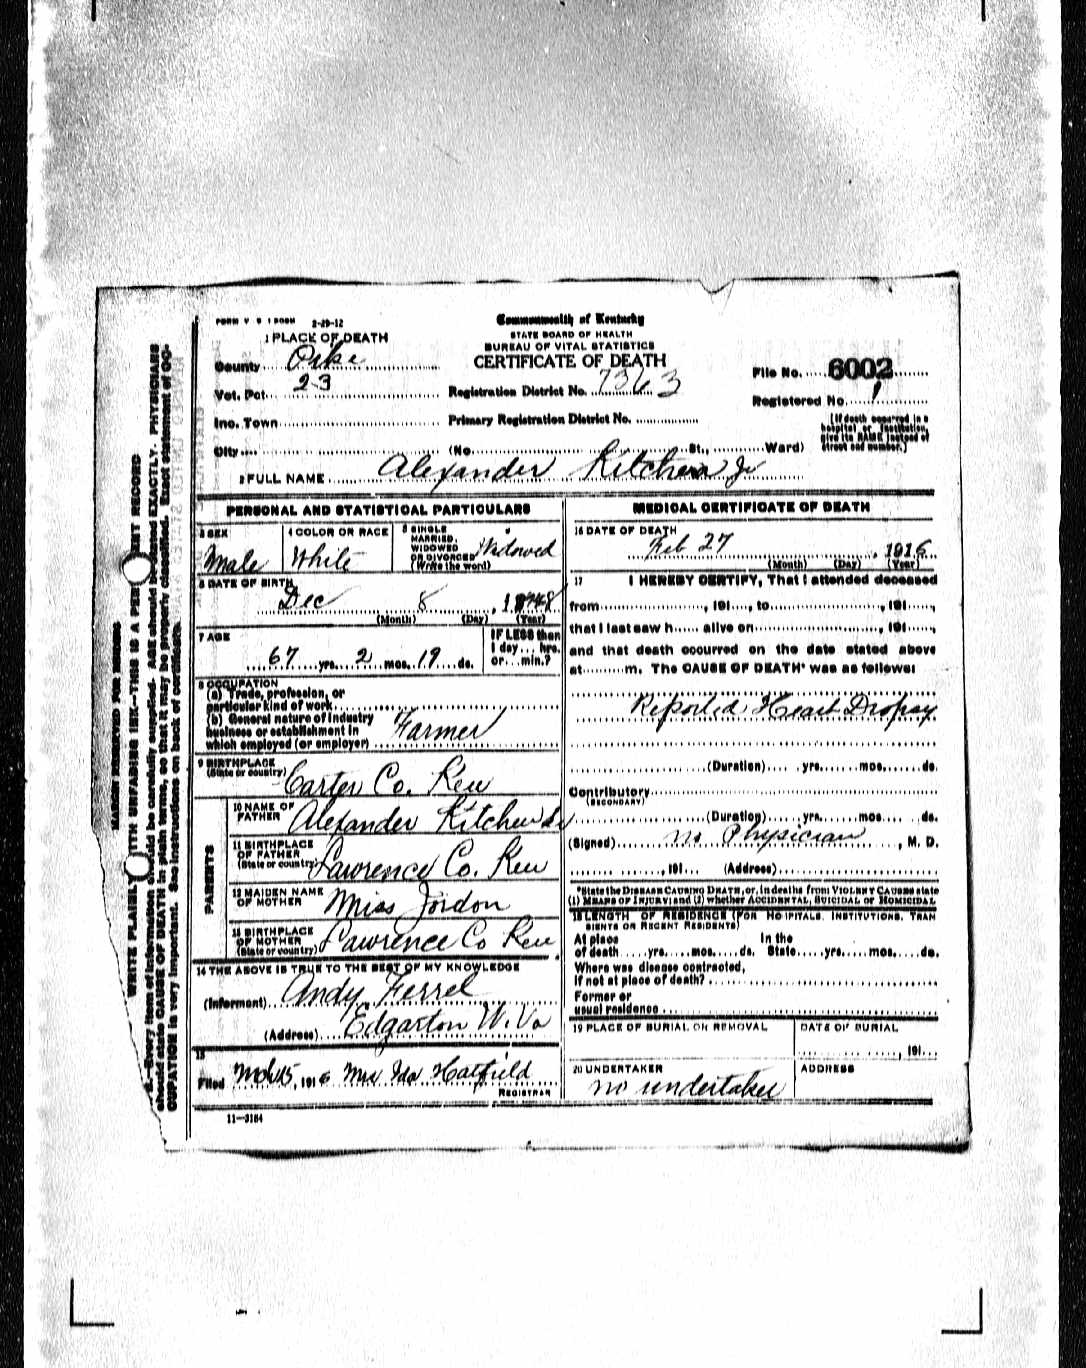 FORM V. S. 1 50M 2-29-12
Commonwealth of Kentucky
STATE BOARD OF HEALTH
BUREAU OF VITAL STATISTICS
CERTIFICATE OF DEATH
1 PLACE OF DEATH
County Pike
Vot. Pct. 23
Registration District No. 7363
File No. 6002
Registered No. 1
Inc. Town
Primary Registration District No.
[If death occurred in a
hospital or institution,
give its NAME instead of
street and number.]
City (No. St., Ward)
2 FULL NAME Alexander Kitchen Jr
PERSONAL AND STATISTICAL PARTICULARS
3 SEX Male
4 COLOR OR RACE White
5 SINGLE
MARRIED,
WIDOWED
OR DIVORCED
(Write the word) Widowed
6 DATE OF BIRTH
Dec 8, 1848
(Month) (Day) (Year)
7 AGE
67 yrs. 2 mos. 19 ds.
IF LESS than
1 day... hrs.
or...min.?
8 OCCUPATION
(a) Trade, profession, or
particular kind of work
(b) General nature of industry
business or establishment in
which employed (or employer) Farmer
9 BIRTHPLACE
(State or country) Carter Co. Ken
PARENTS
10 NAME OF
FATHER Alexander Kitchen Sr
11 BIRTHPLACE
OF FATHER
(State or country) Lawrence Co. Ken
12 MAIDEN NAME
OF MOTHER Miss Jordon
13 BIRTHPLACE
OF MOTHER
(State or country) Lawrence Co Ken
14 THE ABOVE IS TRUE TO THE BEST OF MY KNOWLEDGE
(Informant) Andy Ferrel
(Address) Edgarton W. Va
15
Filed 15, 1916 Mrs Ida Hatfield
REGISTRAR
11-3184
MEDICAL CERTIFICATE OF DEATH
16 DATE OF DEATH
Feb 27, 1916
(Month) (Day) (Year)
17 I HEREBY CERTIFY, That I attended deceased
from , 191 , to , 191 ,
that I last saw h alive on , 191 ,
and that death occurred on the date stated above
at m. The CAUSE OF DEATH* was as follows:
Reported Heart Dropsy
(Duration) yrs. mos. ds.
Contributory
(SECONDARY)
(Duration) yrs. mos. ds.
(Signed) no Physician, M. D.
, 191 (Address)
*State the DISEASE CAUSING DEATH, or, in deaths from VIOLENT CAUSES state
(1) MEANS OF INJURY; and (2) whether ACCIDENTAL, SUICIDAL or HOMICIDAL
18 LENGTH OF RESIDENCE (FOR HOSPITALS, INSTITUTIONS, TRAN
SIENTS OR RECENT RESIDENTS)
At place In the
of death yrs. mos. ds. State yrs. mos. ds.
Where was disease contracted,
if not at place of death?
Former or
usual residence
19 PLACE OF BURIAL OR REMOVAL
DATE OF BURIAL
, 191
20 UNDERTAKER
no undertaker
ADDRESS
MARGIN RESERVED FOR BINDING
WRITE PLAINLY WITH UNFADING INK—THIS IS A PERMANENT RECORD
N. B.—Every item of information should be carefully supplied. AGE should be stated EXACTLY. PHYSICIANS
should state CAUSE OF DEATH in plain terms, so that it may be properly classified. Exact statement of OC-
CUPATION is very important. See instructions on back of certificate.